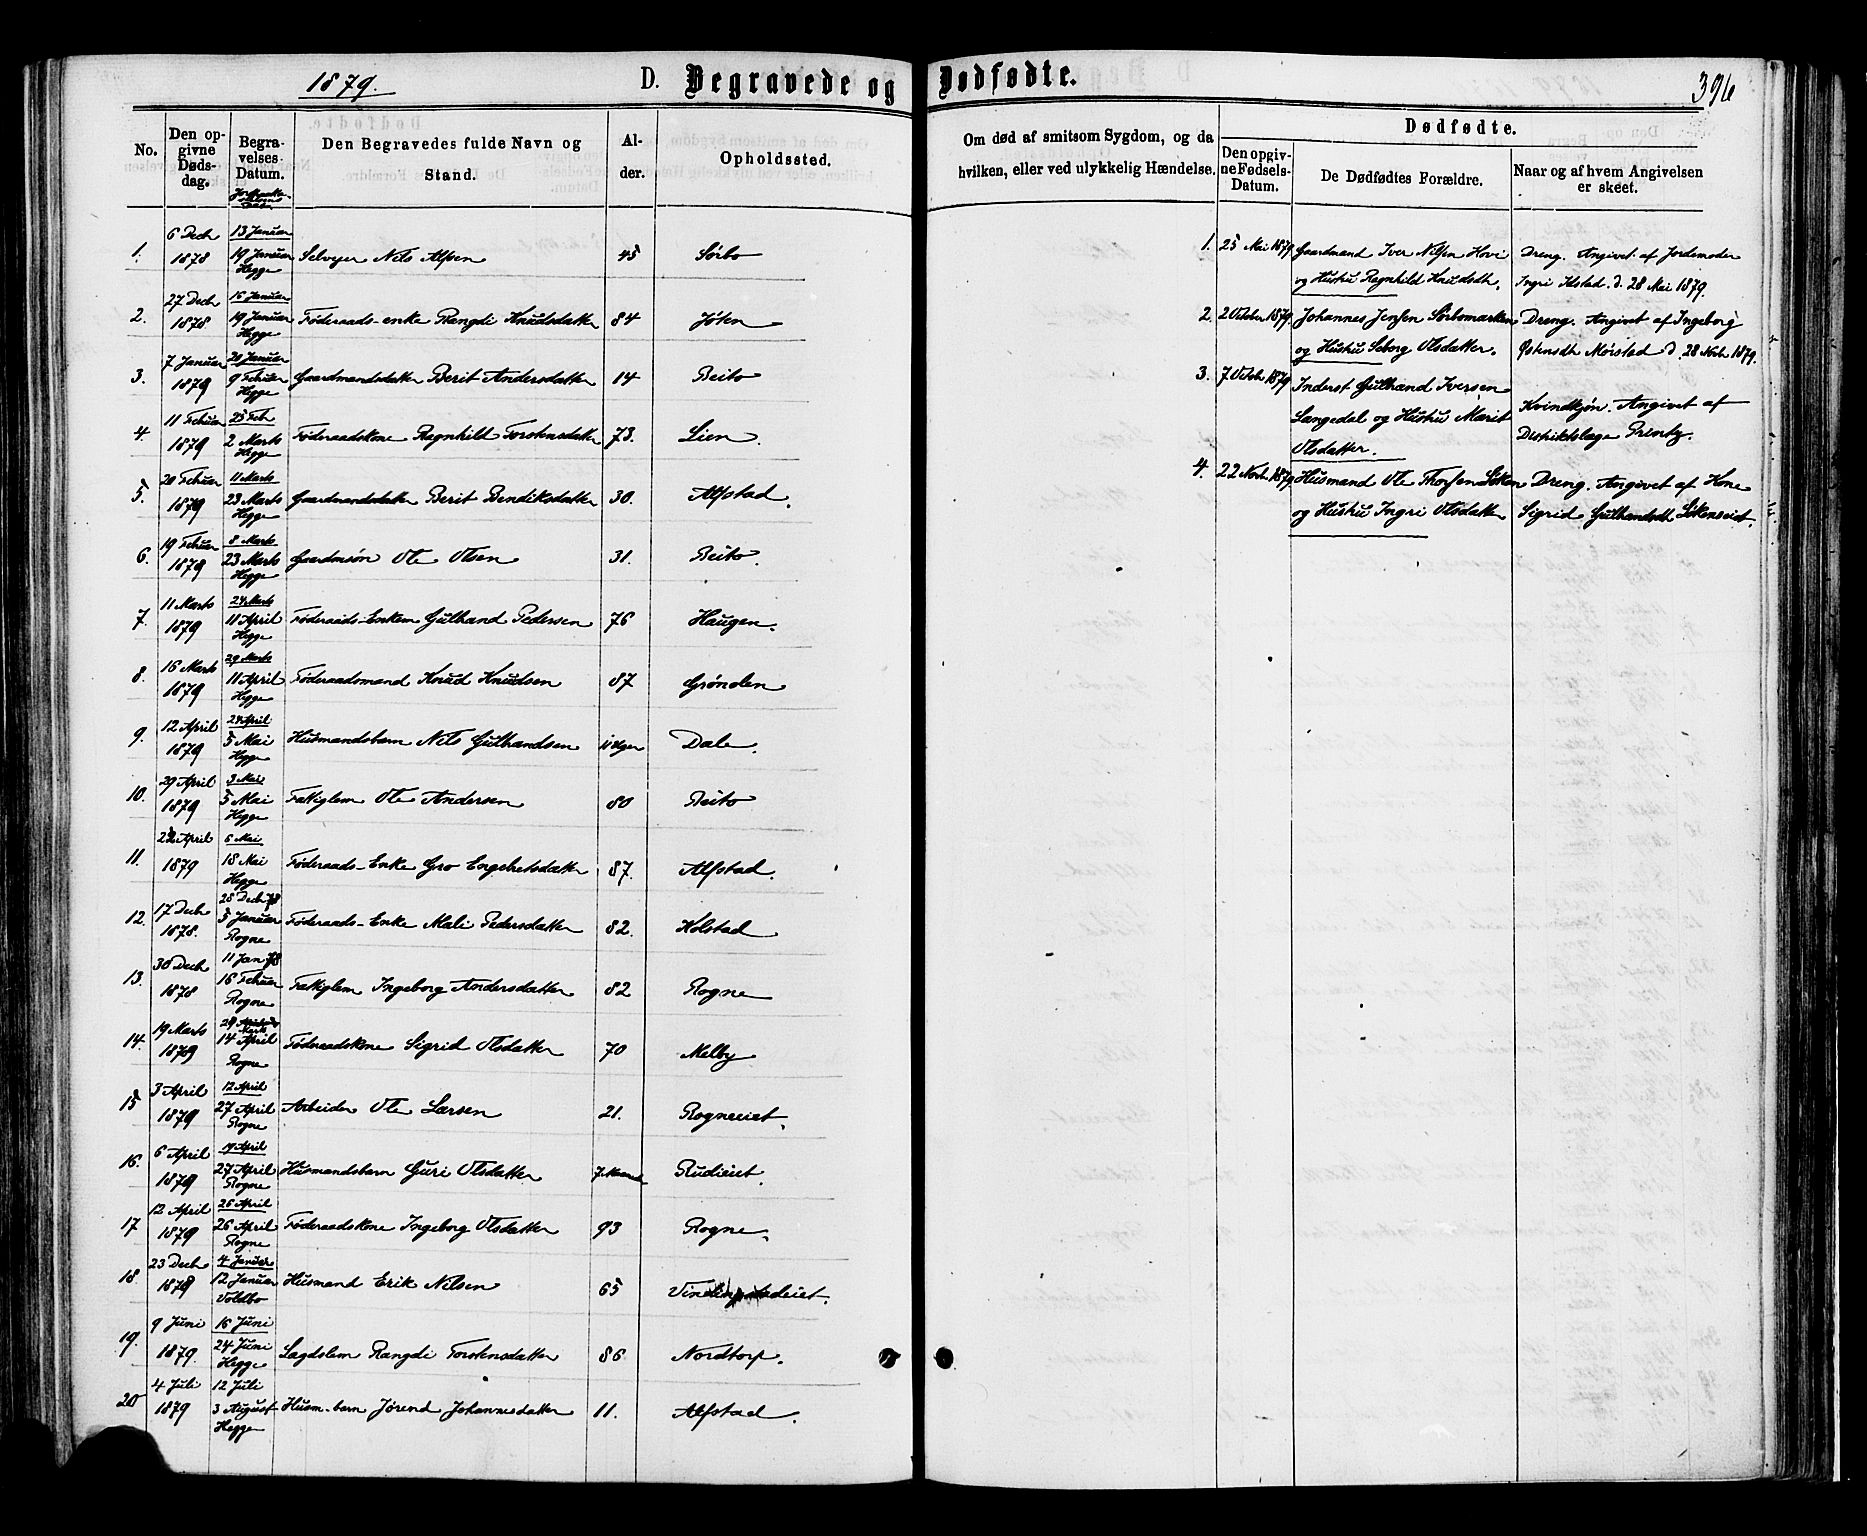 1879.
D. Begravede og Dødfødte.
396
No.
Den opgivne Dødsdag.
Begravelses-Datum.
Den Begravedes fulde Navn og Stand.
Alder.
Opholdssted.
Om død af smitsom Sygdom, og da hvilken, eller ved ulykkelig Hændelse.
Dødfødte.
Den opgivne Fødsels-Datum.
De Dødfødtes Forældre.
Naar og af hvem Angivelsen er skeet.
1. 6 Decb 1878 13 Januar 19 Januar Hegge Selveier Nils Alfsen 45 Sørbo
2. 27 Decb 1878 16 Januar 19 Januar Hegge Føderaads-enke Rangdi Knudsdatter 84 Jøten
3. 7 Januar 1879 20 Januar 9 Februar Hegge Gaardmandsdatter Berit Andersdatter 14 Beito
4. 11 Februar 1879 25 Feb 2 Marts Hegge Føderaadskone Ragnhild Torstensdatter 73. Lien.
5. 20 Februar 1879 11 Marts 23 Marts Hegge Gaardmandsdatter Berit Bendiksdatter 30. Alfstad.
6. 19 Februar 1879 8 Marts 23 Marts Hegge Gaardmsøn Ole Olsen 31. Beito.
7. 11 Marts 1879 24 Marts 11 April Hegge Føderaads-Enkem Gulbrand Pedersen 76 Haugen.
8. 16 Marts 1879 29 Marts 11 April Hegge Føderaadsmand Knud Knudsen 87 Grønolen
9. 12 April 1879 24 April 5 Mai Hegge Husmandsbarn Nils Gulbrandsen Uger Dale.
10. 29 April 1879 3 Mai 5 Mai Hegge Fattiglem Ole Andersen 80 Beito
11. 22 April 1879 6 Mai 18 Mai Hegge Føderaads-Enke Gro Engebretsdatter 87. Alfstad.
12. 17 Decb 1878. 28 Decb 78 5 Januar Rogne Føderaads-Enke Mali Pedersdatter 82. Kolstad
13. 30 Decb 1878 11 Jan 16 Februar Rogne Fattiglem Ingeborg Andersdatter 82 Rogne
14. 19 Marts 1879 29 Marts 14 April Rogne Føderaadskone Sigrid Olsdatter 70 Melby
15 3 April 1879 12 April 27 April Rogne Arbeider Ole Larsen 21. Rogneeiet.
16. 6 April 1879 19 April 27 April Rogne Husmandsbarn Guri Olsdatter 7 Maaned Rudieiet.
17 12 April 1879 26 April 26 April Rogne Føderaadskone Ingeborg Olsdatter 93 Rogne.
18 23 Decb 1878 4 Januar 12 Januar Voldbo Husmand Erik Nilsen 65
19. 9 Juni 1879. 16 Juni 24 Juni Hegge Lægdslem Rangdi Torstensdatter 86 Nordtorp.
20 4 Juli 1879 12 Juli 3 August Hegge Husm-barn Jørend Johannesdatter 11. Alfstad.
1. 25 Mai 1879 Gaardmand Iver Nilsen Hovi Dreng. Angivet af Jordemoder
og Hustru Ragnhild Knudsdtr. Ingri Idstad. d. 28 Mai 1879.
2. 2 October 1879. Johannes Jensen Sørbomarken Dreng. Angivet af Ingeborg
og Hustru Seborg Olsdatter. Østensdtr Mørstad d. 28 Novb. 1879.
3. 7 Octobr 1879 Inderst Gulbrand Iversen
Langedal og Hustru Marit Kvindkjøn. Angivet af
Olsdatter. Distriktslæge Printz.
4. 22 Novbr 1879 Husmand Ole Thorsen Løken Dreng. Angivet af Kone
og Hustru Ingri Olsdatter Sigrid Gulbrandsdtr Løkenseiet.